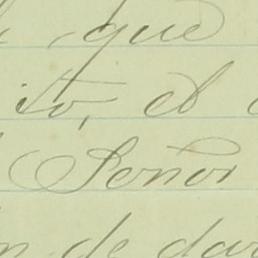 que
to, el
Señor
de dar